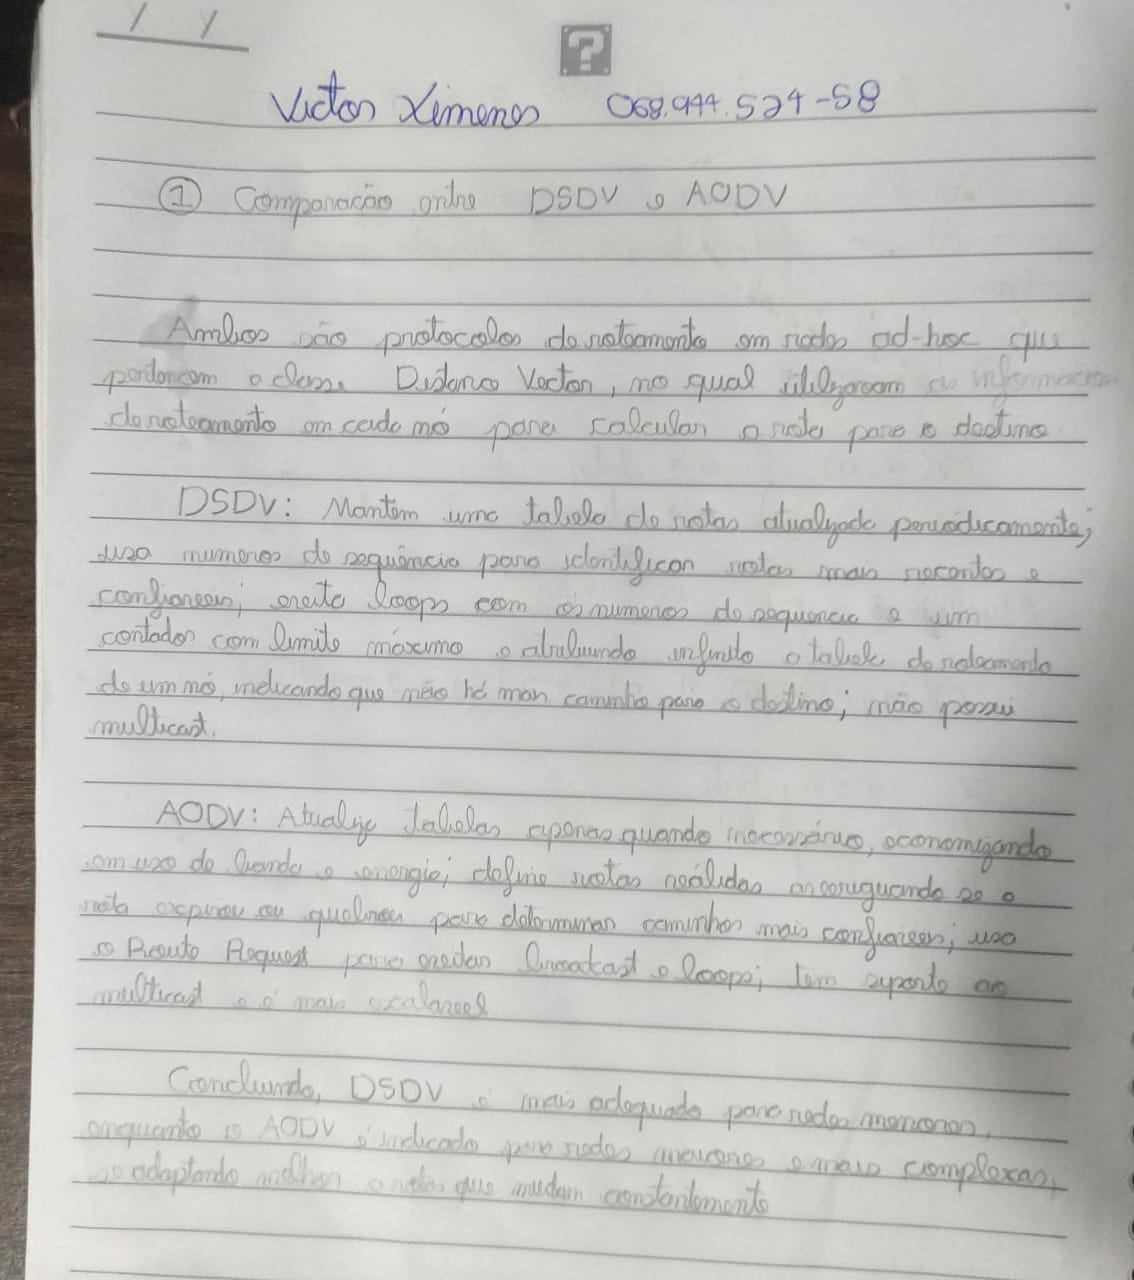 Victor Ximenes 068.944.524-58
① Comparação entre DSDV e AODV
Ambos são protocolos de roteamento em redes ad-hoc que
pertencem a classe Distance Vector, no qual utilizaram as informações
de roteamento em cada nó para calcular a rota para o destino
DSDV: Mantem uma tabela de rotas atualizada periodicamente;
usa numeros de sequência para identificar rotas mais recentes e
confiaveis; evita loops com os numeros de sequencia e um
contador com limite máximo e atribuindo infinito a tabela de roteamento
de um nó, indicando que não há mais caminho para o destino; não possui
multicast.
AODV: Atualiza tabelas apenas quando necessário, economizando
em uso de banda e energia; define rotas se a
rota expirou ou quebrou para determinar caminhos mais confiaveis; usa
o Route Request para evitar broadcast e loops; tem suporte ao
multicast e é mais escalavel
Concluindo, DSDV é mais adequado para redes menores,
enquanto o AODV é indicado para redes maiores e mais complexas,
se adaptando melhor a redes que mudam constantemente